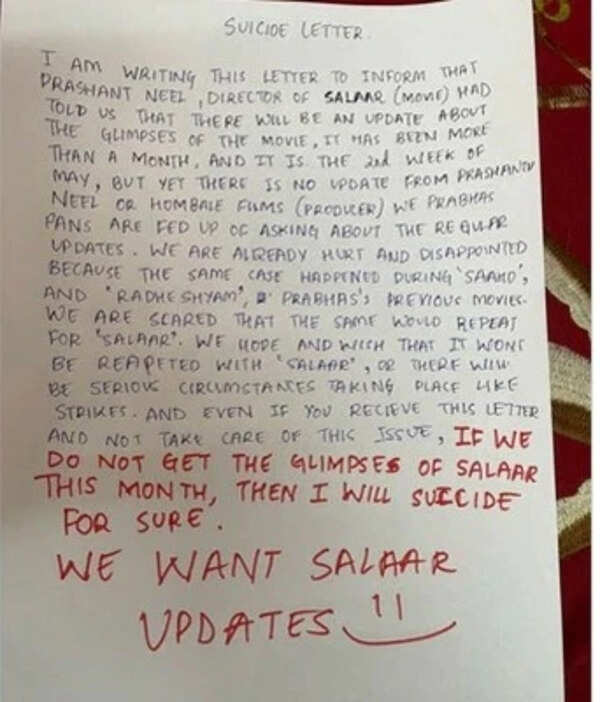 SUICIDE LETTER.
I AM WRITING THIS LETTER TO INFORM THAT
PRASHANT NEEL, DIRECTOR OF SALAAR (MOVIE) HAD
TOLD US THAT THERE WILL BE AN UPDATE ABOUT
THE GLIMPSES OF THE MOVIE, IT HAS BEEN MORE
THAN A MONTH, AND IT IS THE 2nd WEEK OF
MAY, BUT YET THERE IS NO UPDATE FROM PRASHANTH
NEEL OR HOMBALE FILMS (PRODUCER) WE PRABHAS
FANS ARE FED UP OF ASKING ABOUT THE REGULAR
UPDATES. WE ARE ALREADY HURT AND DISAPPOINTED
BECAUSE THE SAME CASE HAPPENED DURING 'SAAHO',
AND 'RADHE SHYAM', PRABHAS'S PREVIOUS MOVIES.
WE ARE SCARED THAT THE SAME WOULD REPEAT
FOR 'SALAAR'. WE HOPE AND WISH THAT IT WONT
BE REAPETED WITH 'SALAAR', OR THERE WILL
BE SERIOUS CIRCUMSTANCES TAKING PLACE LIKE
STRIKES. AND EVEN IF YOU RECIEVE THIS LETTER
AND NOT TAKE CARE OF THIS ISSUE, IF WE
DO NOT GET THE GLIMPSES OF SALAAR
THIS MONTH, THEN I WILL SUICIDE
FOR SURE.
WE WANT SALAAR
UPDATES